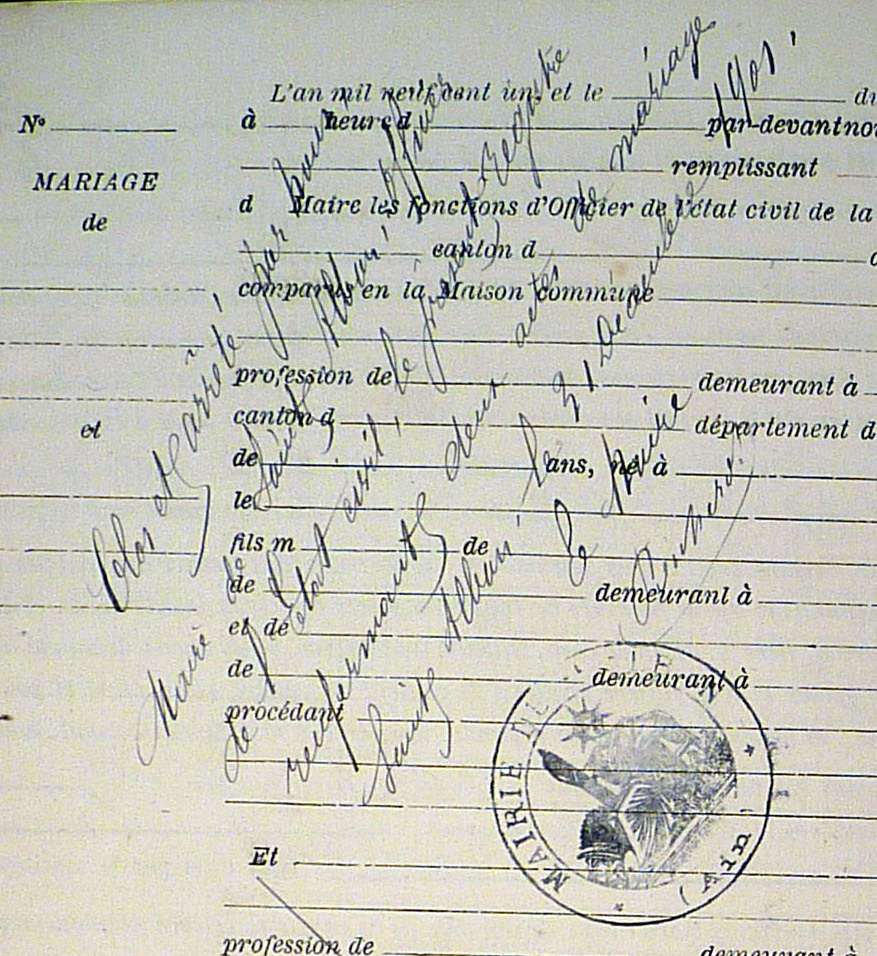 L'an mil neuf cent un, et le du
N°
à heure d par-devant nou
MARIAGE
remplissant
de
d Maire les fonctions d'Officier de l'état civil de la
canton d
comparus en la Maison commune
profession de demeurant à
et
canton d département d
de ans, né à
le
fils m de
de demeurant à
et de
de demeurant à
procédant
Et
profession de demeurant à
Clos et arrêté par nous
Maire de Saint Alban, officier
de l'état civil, le présent registre
renfermant deux actes de mariage
Saint Alban le 31 Décembre 1901.
Le Maire
MAIRIE DE
(Ain)